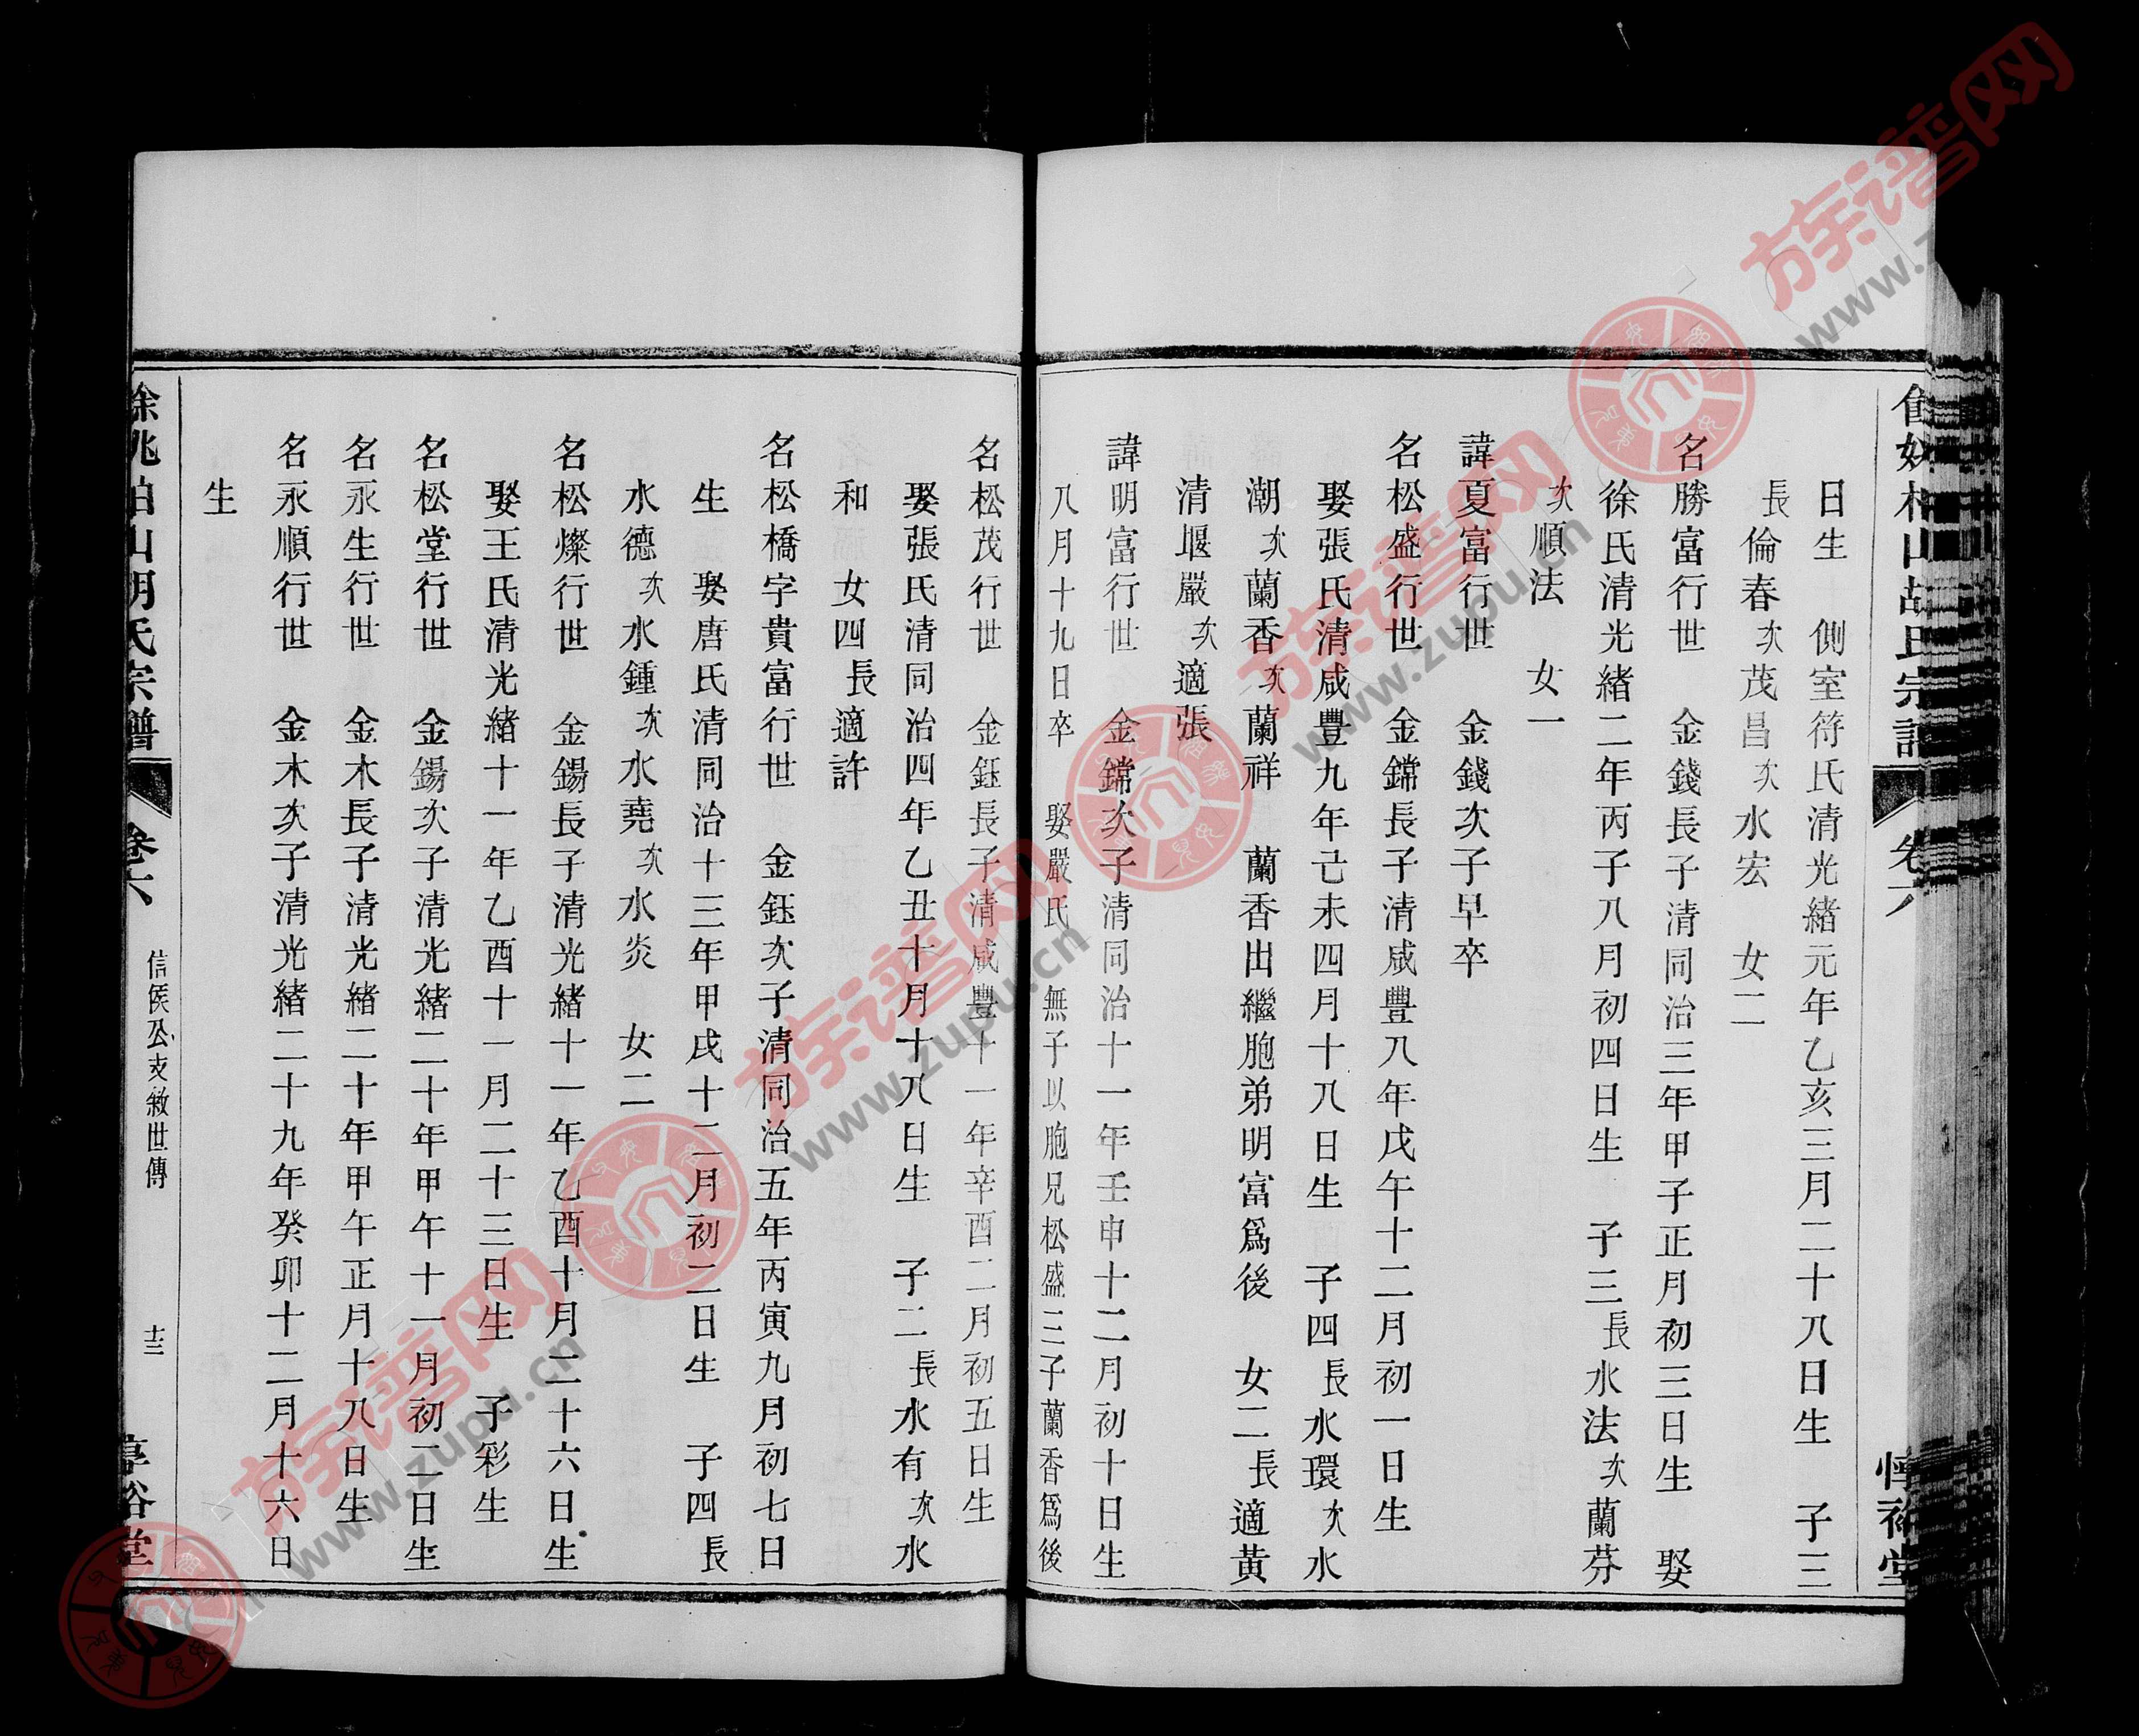 餘姚柏山胡氏宗譜 卷六 惇裕堂
日生 側室符氏清光緒元年乙亥三月二十八日生 子三
長倫春次茂昌次水宏 女二
名勝富行世 金錢長子清同治三年甲子正月初三日生 娶
徐氏清光緒二年丙子八月初四日生 子三長水法次蘭芬
次順法 女一
諱夏富行世 金錢次子早卒
名松盛行世 金鐺長子清咸豐八年戊午十二月初一日生
娶張氏清咸豐九年己未四月十八日生 子四長水環次水
潮次蘭香次蘭祥 蘭香出繼胞弟明富爲後 女二長適黃
清堰嚴次適張
諱明富行世 金鐺次子清同治十一年壬申十二月初十日生
八月十九日卒 娶嚴氏 無子以胞兄松盛三子蘭香爲後
名松茂行世 金鈺長子清咸豐十一年辛酉二月初五日生
娶張氏清同治四年乙丑十月十八日生 子二長水有次水
和 女四長適許
名松橋字貴富行世 金鈺次子清同治五年丙寅九月初七日
生 娶唐氏清同治十三年甲戌十二月初二日生 子四長
水德次水鍾次水堯次水炎 女二
名松燦行世 金鍚長子清光緒十一年乙酉十月二十六日生
娶王氏清光緒十一年乙酉十一月二十三日生 子彩生
名松堂行世 金鍚次子清光緒二十年甲午十一月初二日生
名永生行世 金木長子清光緒二十年甲午正月十八日生
名永順行世 金木次子清光緒二十九年癸卯十二月十六日
生
餘姚柏山胡氏宗譜 卷六 信侯公支敘世傳 十三 惇裕堂
族谱网
www.zupu.cn
族谱网
www.zupu.cn
族谱网
www.zupu.cn
族谱网
www.z